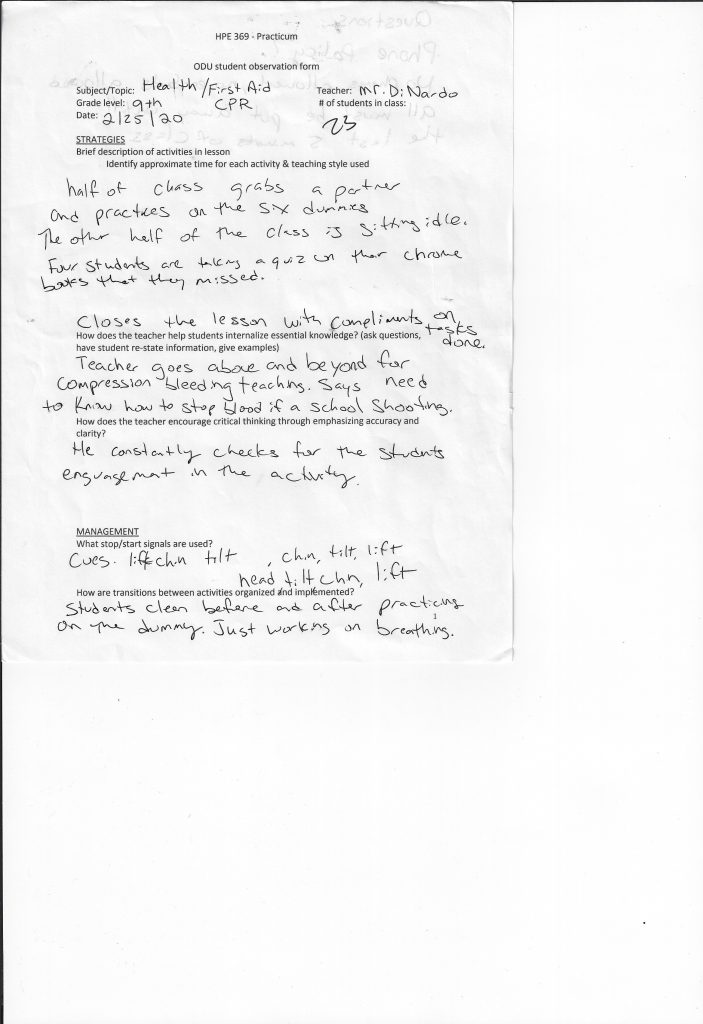 HPE 369 - Practicum
ODU student observation form
Subject/Topic: Health/First Aid Teacher: Mr. DiNardo
Grade level: 9th CPR # of students in class:
Date: 2/25/20 23
STRATEGIES
Brief description of activities in lesson
Identify approximate time for each activity & teaching style used
half of chass grabs a partner
and practices on the six dummies
The other half of the class is sitting idle.
Four students are taking a quiz on their chrome
books that they missed.
Closes the lesson with compliments on
tasks
done.
How does the teacher help students internalize essential knowledge? (ask questions,
have student re-state information, give examples)
Teacher goes above and beyond for
compression bleeding teaching. Says need
to know how to stop blood if a school shooting.
How does the teacher encourage critical thinking through emphasizing accuracy and
clarity?
He constantly checks for the students
enguagemant in the activity.
MANAGEMENT
What stop/start signals are used?
Cues. lift chin tilt , chin, tilt, lift
head tilt chin, lift
How are transitions between activities organized and implemented?
Students clean before and after practicing
on the dummy. Just working on breathing.
1
Questions:
Phone Policy?